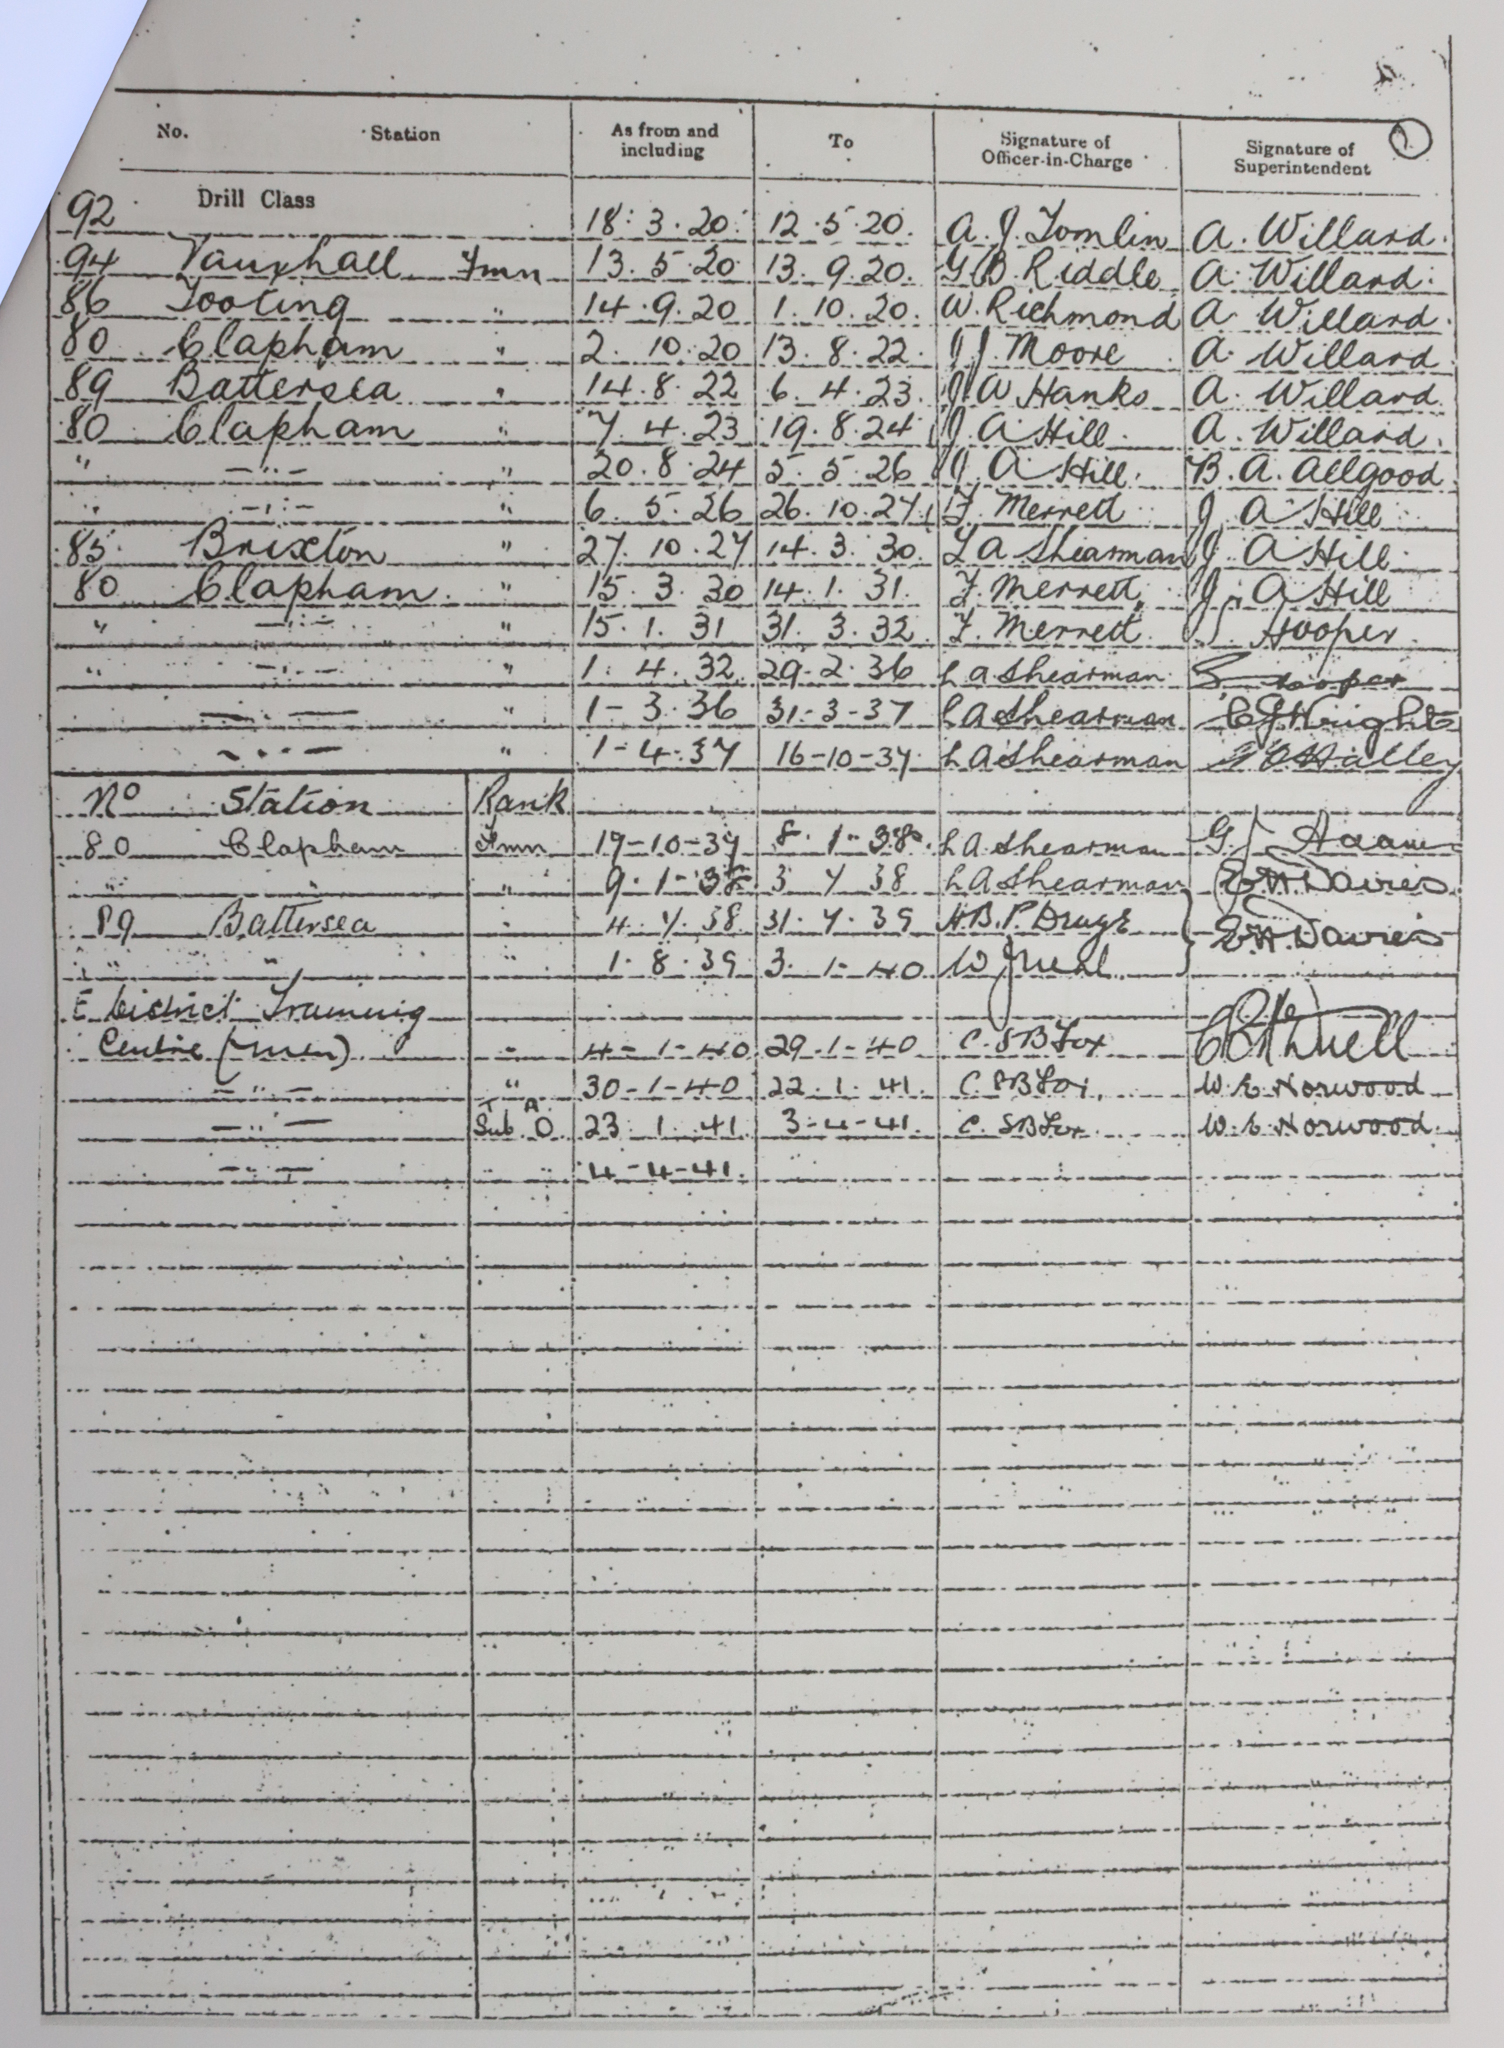 No. Station As from and including To Signature of Officer-in-Charge Signature of Superintendent
92 Drill Class 18.3.20. 12.5.20. A. J. Tomlin A. Willard.
94 Vauxhall Fmn 13.5.20 13.9.20. G B. Riddle A. Willard.
86 Tooting " 14.9.20 1.10.20. W. Richmond A. Willard.
80 Clapham " 2.10.20 13.8.22. J J. Moore A. Willard
89 Battersea " 14.8.22 6.4.23. J. A Hanks A. Willard
80 Clapham " 7.4.23 19.8.24 J. A Hill. A. Willard.
" —"— " 20.8.24 5.5.26 J. A. Hill. B. A. Allgood
" —"— " 6.5.26 26.10.27 F. Merrett J. A Hill
85. Brixton " 27.10.27 14.3.30. L A Shearman J. A Hill.
80 Clapham " 15.3.30 14.1.31. F. Merrett J. A Hill
" —"— " 15.1.31 31.3.32. F. Merrett. Hooper.
" —"— " 1.4.32. 29.2.36 L A Shearman Hooper
—"— " 1-3.36 31-3-37 L A Shearman C G Wright
—"— " 1-4.37 16-10-37. L A Shearman Halley
No Station Rank
80 Clapham Fmn 17-10-37 8.1-38. L A Shearman G
" " " 9-1-38 3 7 38 L A Shearman E. H. Davies
89 Battersea " 4.7.38 31.7.39 H. B. P. E. H. Davies
" " " 1.8.39 3.1-40 W
E District Training
Centre (Men) " 4-1-40 29.1-40 C. S B Fox
—"— " 30-1-40 22.1.41. C. S B Fox. W. E Norwood
—"— T A Sub O 23.1.41 3-4-41. C. S B Fox. W. E. Norwood.
—"— " " 4-4-41.